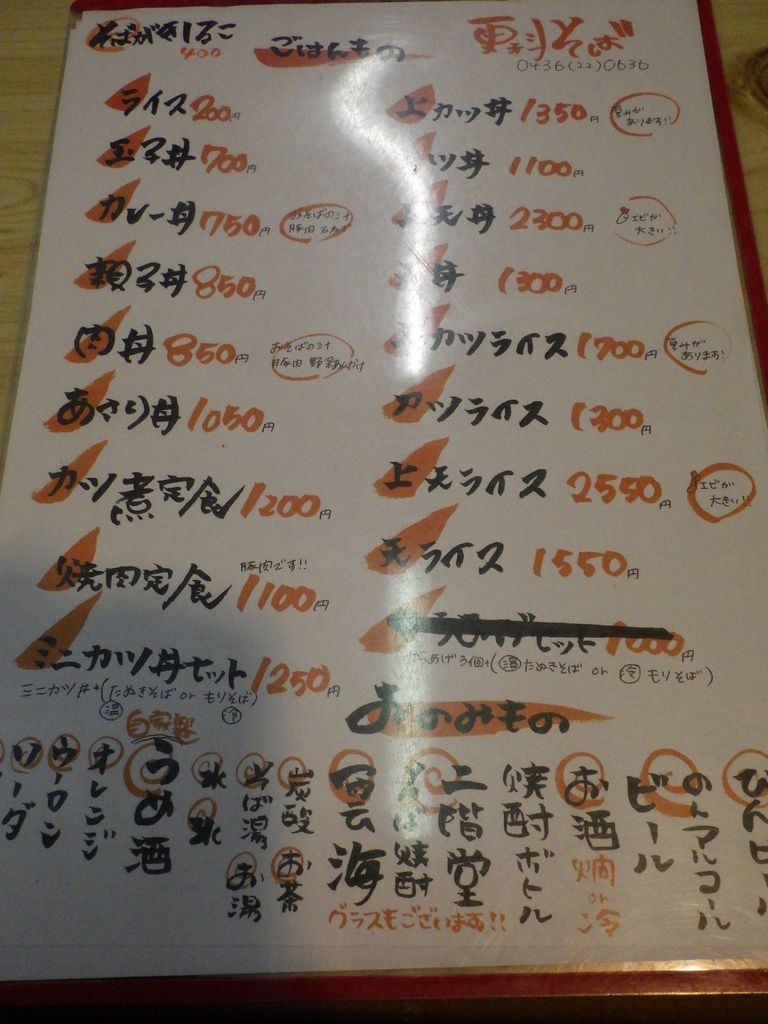 そばがきしるこ
400
ごはんもの
そば
0436(22)0636
ライス200円
玉子丼700円
カレー丼750円
おそばの汁
豚肉
親子丼850円
肉丼850円
おそばの汁
豚肉 野菜あんかけ
あさり丼1050円
カツ煮定食1200円
焼肉定食1100円
豚肉です!!
ミニカツ丼セット1250円
ミニカツ丼+(たぬきそば or もりそば)
温 冷
上カツ丼1350円
厚みが
あります!!
ツ丼1100円
天丼2300円
エビが
大きい!!
丼1300円
カツライス1700円
厚みが
あります!
カツライス1300円
上天ライス2550円
エビが
大きい!!
天ライス1550円
からあげセット1000円
からあげ3個+(温たぬきそば or 冷もりそば)
おのみもの
びんビール
のんアルコール
ビール
お酒
燗or冷
焼酎ボトル
二階堂
そば焼酎
雲海
グラスもございます!!
炭酸
お茶
そば湯
お湯
水
氷
自家製
うめ酒
オレンジ
ウーロン
ソーダ